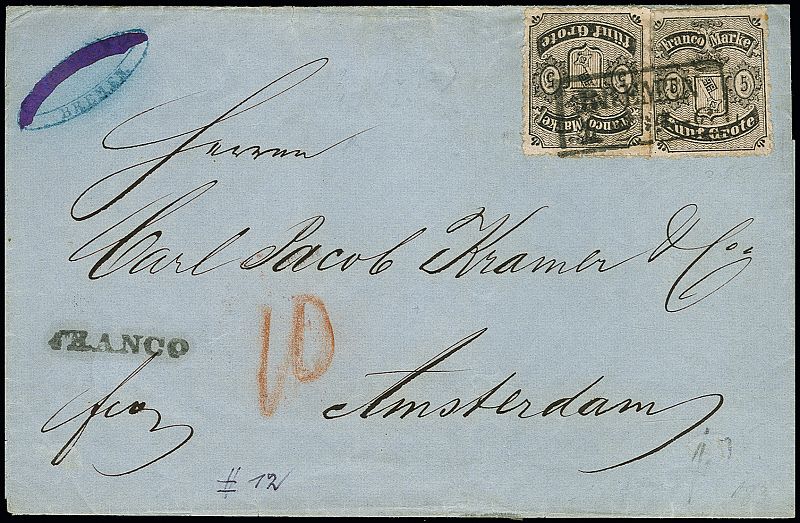 BREMEN
fünf Grote
5 5
franco Marke
franco Marke
5 5
fünf Grote
BREMEN
Herren
Carl Jacob Kramer & Co.
FRANCO
10
fco
Amsterdam
# 12